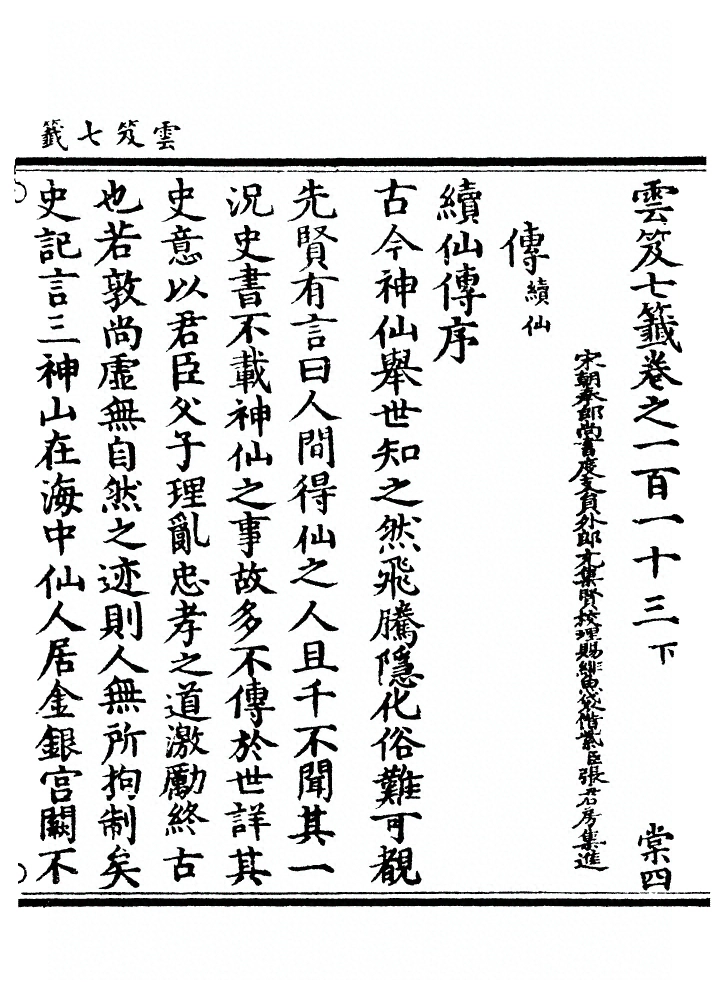 雲笈七籤
雲笈七籤卷之一百一十三下 棠四
宋朝奉郎尚書度支員外郎充集賢校理賜緋魚袋借紫臣張君房集進
傳續仙
續仙傳序
古今神仙舉世知之然飛騰隱化俗難可覩
先賢有言曰人間得仙之人且千不聞其一
況史書不載神仙之事故多不傳於世詳其
史意以君臣父子理亂忠孝之道激勵終古
也若敦尚虛無自然之迹則人無所拘制矣
史記言三神山在海中仙人居金銀宮闕不